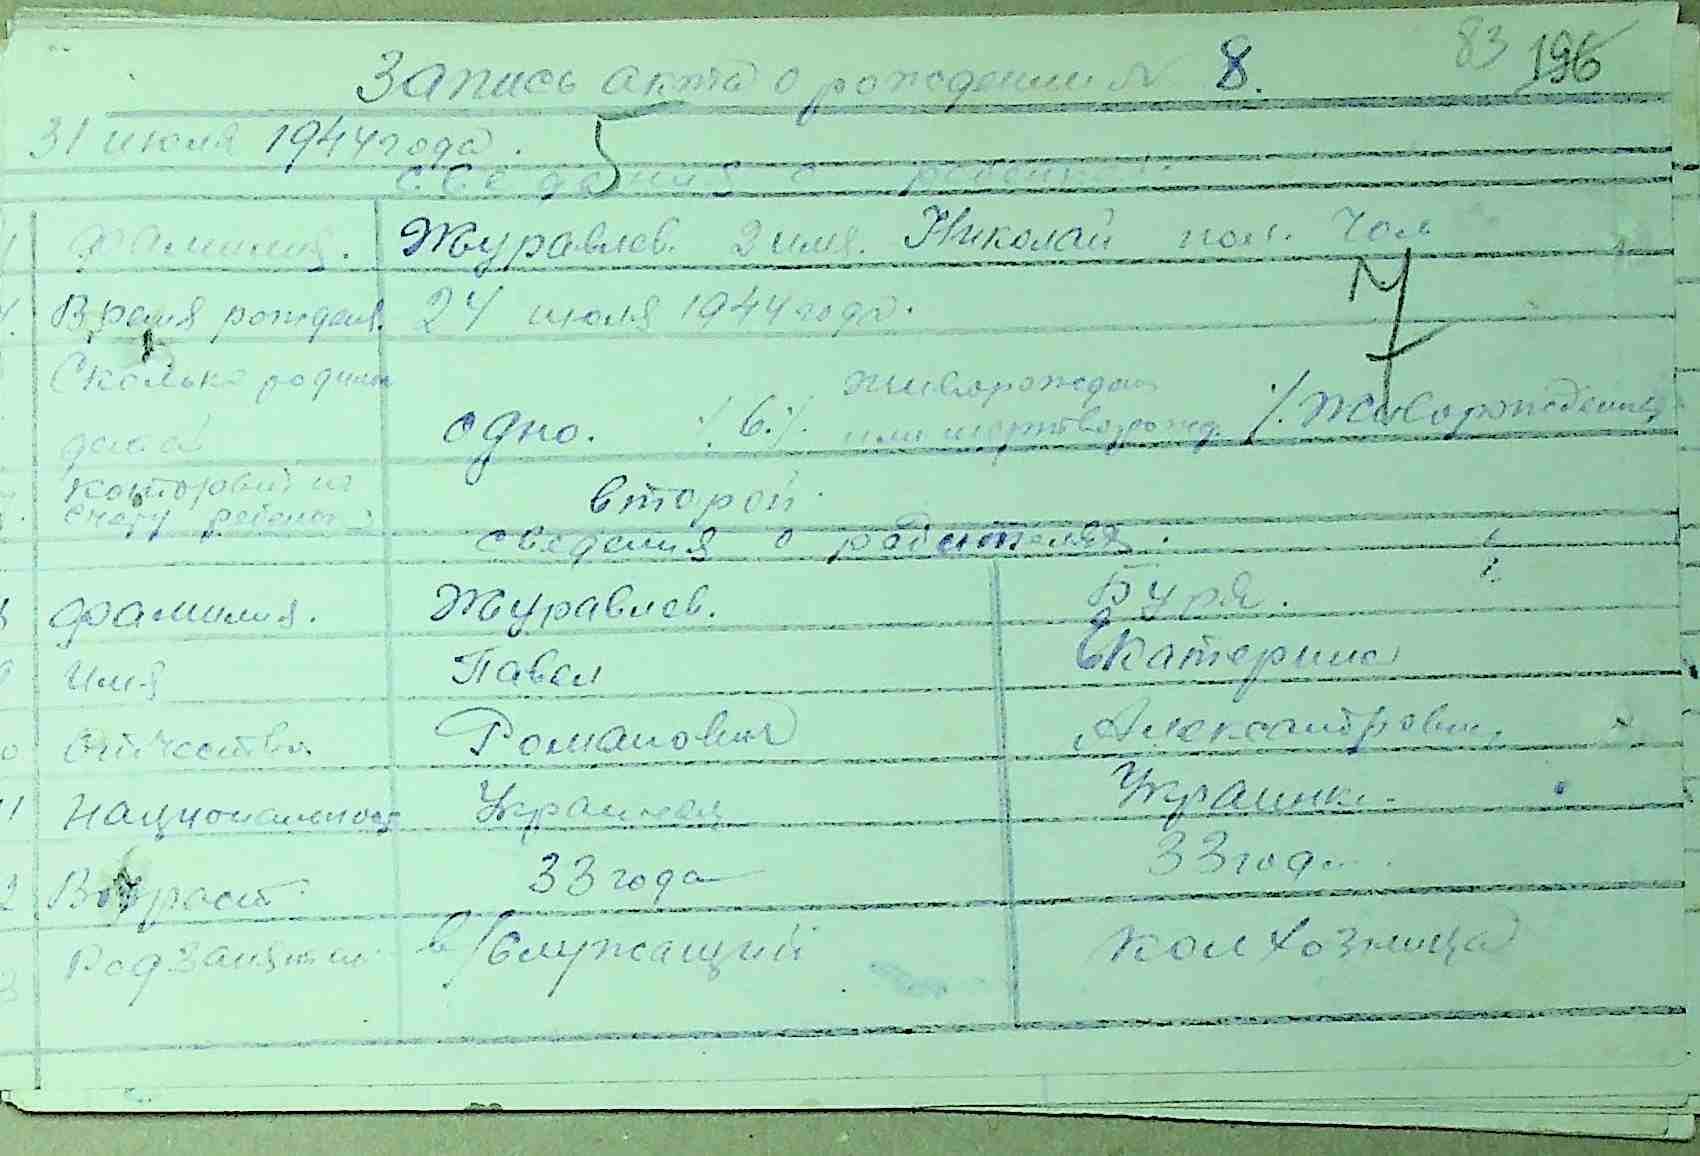 83 196
Запись акта о рождении № 8.
31 июля 1944 года.
5
сведания о ребенке
Фамилия. Журавлев. 2 имя. Николай пол. Чол
Ч
Время рождения. 24 июля 1944 года.
Сколько родилось
живорожден
детей одно. ./. 6./. или мертворожд. ./. Живорожденный
Который по
счету ребенок второй.
сведения о родителях.
8 Фамилия. Журавлев. Буря.
9 Имя Павел Екатерина
Отчество Романович Александровн.
11 Национальност Украинец Украинка
Возраст 33 года 33 года
Род занятий в/служащий колхозница